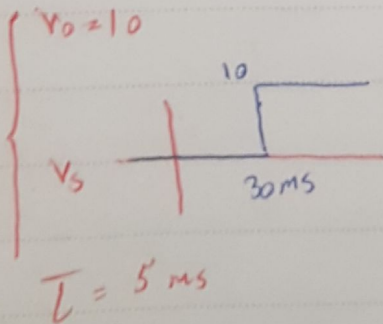 V0 = 10
10
Vs
30ms
τ = 5 ms